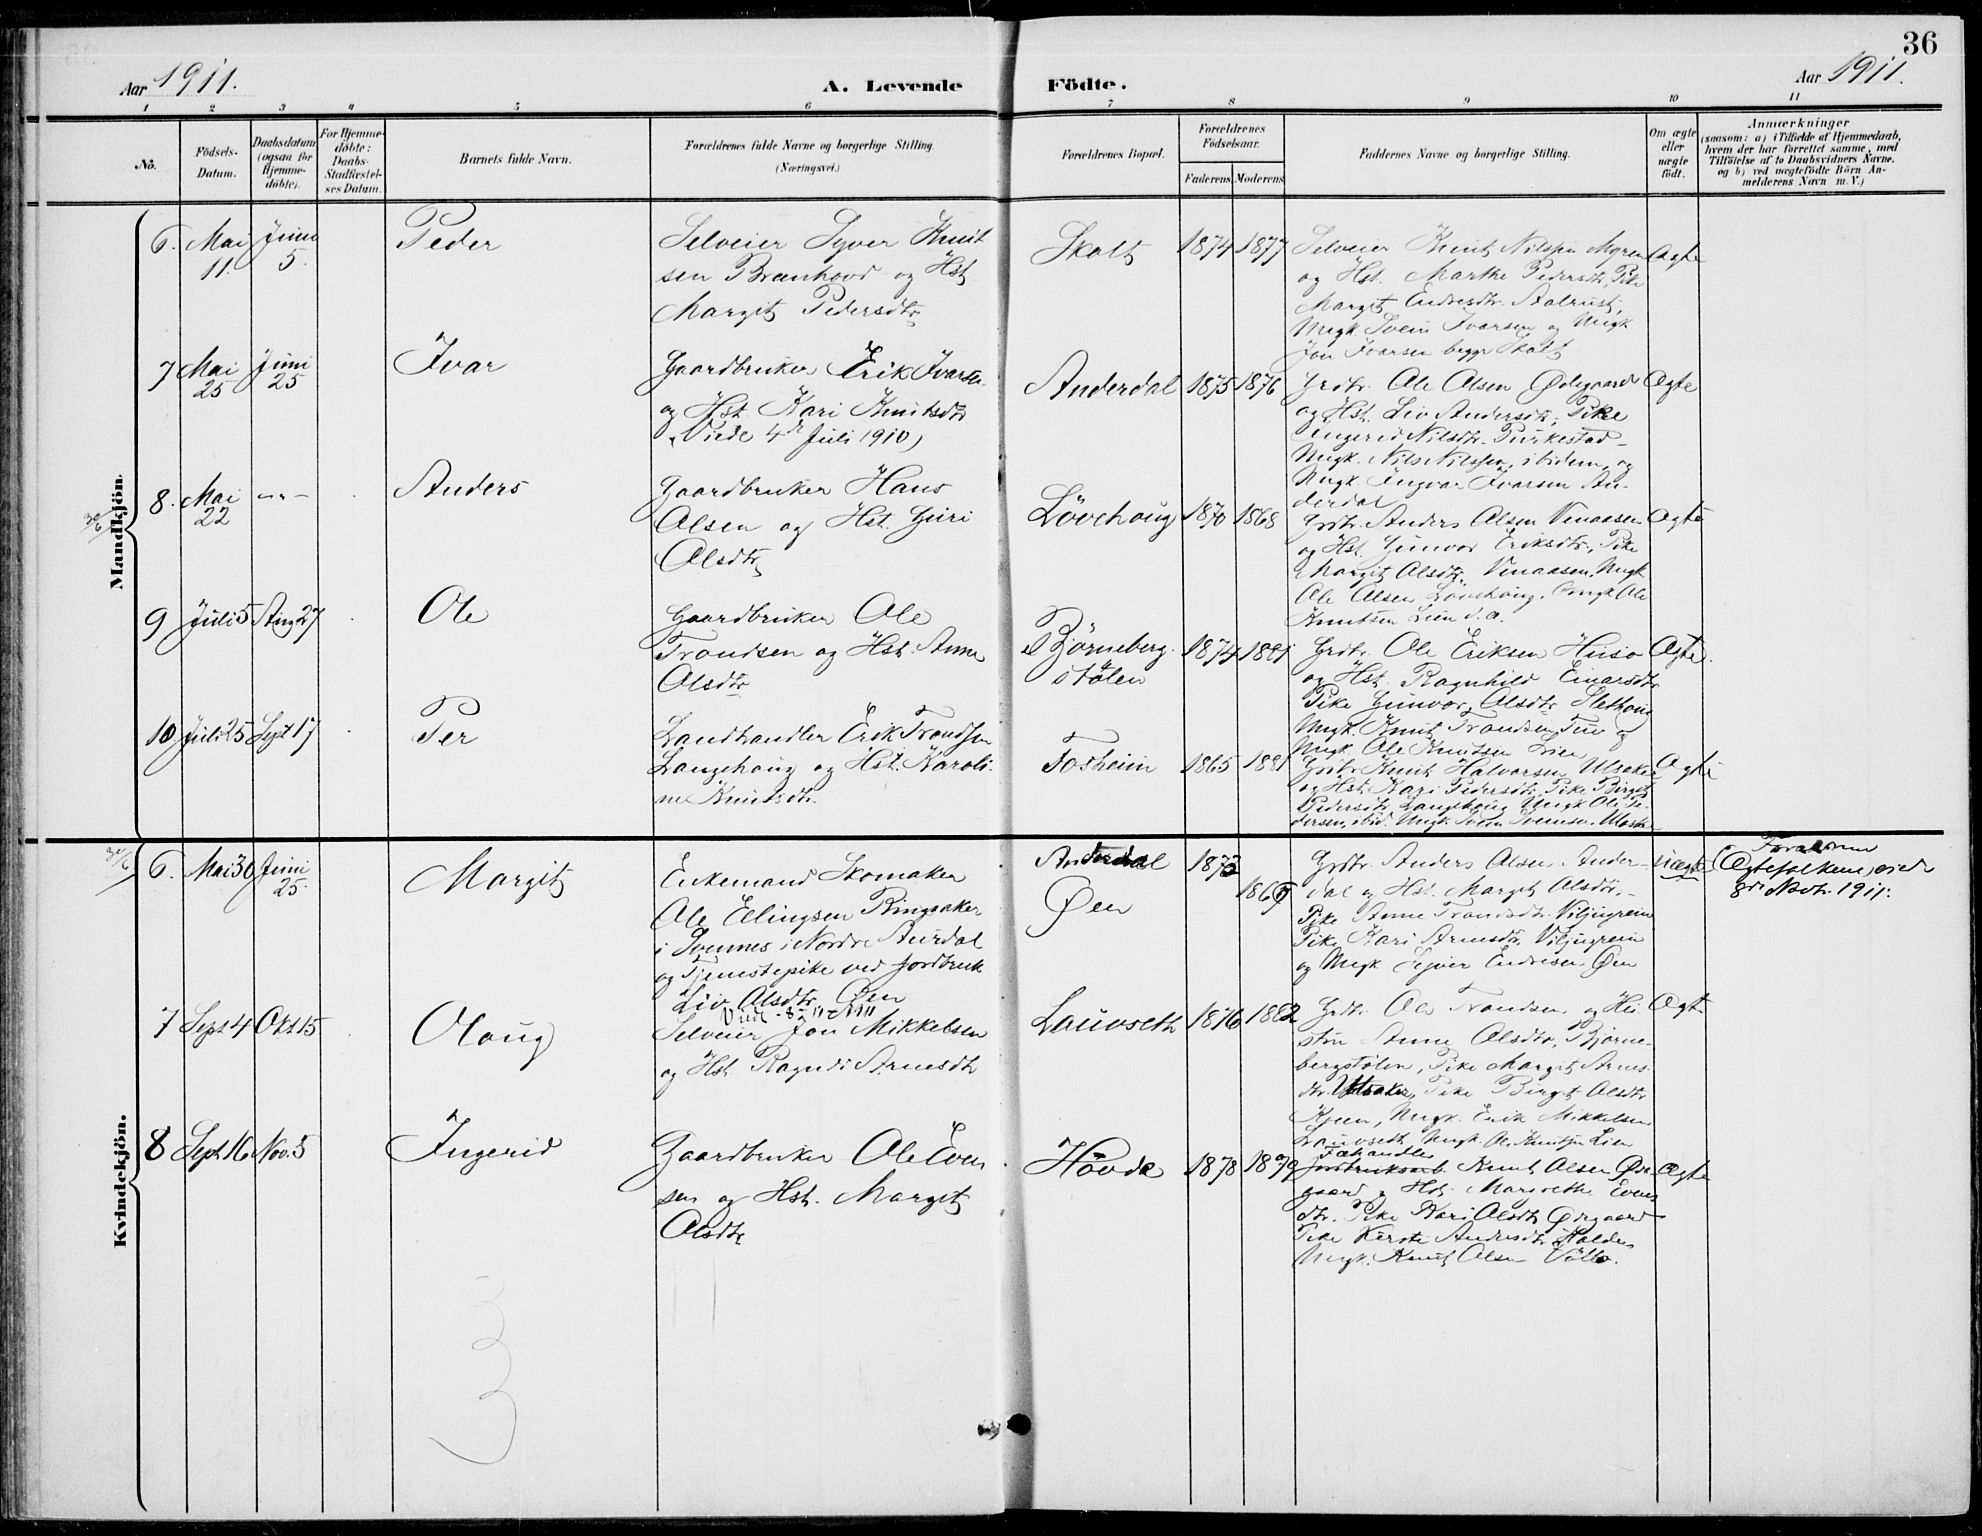 36
Aar 1911.
A. Levende Födte.
Aar 1911.
1 2 3 4 5 6 7 8 9 10 11
No.
Födsels-
Datum.
Daabsdatum
(ogsaa for
Hjemme-
döbte).
For Hjemme-
döbte:
Daabs-
Stadfæstel-
ses Datum.
Barnets fulde Navn.
Forældrenes fulde Navne og borgerlige Stilling.
(Næringsvei.)
Forældrenes Bopæl.
Forældrenes
Födselsaar.
Faderens
Moderens
Faddernes Navne og borgerlige Stilling.
Om ægte
eller
uægte
födt.
Anmærkninger
(saasom: a) i Tilfælde af Hjemmedaab,
hvem der har forrettet samme, med
Tilföielse af to Daabsvidners Navne.
og b) ved uægtefödte Börn An-
melderens Navn m. V.)
Mandkjön.
6. Mai 11. Juni 5.
Peder
Selveier Syver Knut
sen Brænhovd og Hst
Margit Pedersdtr
Skalt
1874 1877
Selveier Knut Nilssen Myren
og Hst. Marthe Pedersdtr, Pike
Margit Endresdtr.
Ungk Svein Ivarsen og Ungk
Jon Ivarsen begge Skalt
Ægte
7 Mai 25 Juni 25
Ivar
Gaardbruker Erik Ivarsen
og Hst. Kari Knutsdtr
(Viede 4de Juli 1910)
Anderdal
1875 1876
Grdbr. Ole Olsen Ødegaard
og Hst. Liv Andersdtr; Pike
Ingerid Nilsdtr.
Ungk. Nils Nilssen, ibidem, og
Ungk. Ingvar Ivarsen An-
derdal
Ægte
8. Mai 22 -"-
Anders
Gaardbruker Hans
Olsen og Hst. Guri
Olsdtr
Lövehaug
1870 1868
Grdbr. Anders Olsen Venaasen
og Hst. Gunvor Eriksdtr, Pike
Margit Olsdtr, Venaasen, Ungk
Ole Olsen Lövehaug. Ungk Ole
Knutsen Lien d.a.
Ægte
9 Juli 5 Aug 27
Ole
Gaardbruker Ole
Trondsen og Hst. Anne
Olsdtr
Björneberg-
stölen
1874 1881
Grdbr. Ole Eriksen Huso
og Hst. Ragnhild Einarsdtr
Pike Gunvor Olsdtr
Ungk. Knut Trondsen og
Ungk. Ole Knutsen Lien
Ægte.
10 Juli 25 Sept 17
Per
Landhandler Erik Trondsen
Langehaug og Hst. Karoli-
ne Knutsdtr.
Fosheim
1865 1881
Grdbr Knut Halvorsen Ulsaker
og Hst Kari Pedersdtr, Pike Birgit
Pedersdtr Langehaug Ungk Ole Pe-
dersen, ibid. Ungk Svein
Ægte
Kvindekjön.
6. Mai 30 Juni 25.
Margit
Enkemand Skomaker
Ole Ellingsen Ringsaker
i Svennes i Nordre Aurdal
og Tjenestepike ved Jordbruk
Liv Olsdtr, Øen
Viede 8/11 1911
Anderdal
Øen
1873
1869
Grdbr. Anders Olsen Ander-
dal og Hst. Margit Olsdtr,
Pike Anne Trondsdtr. Viljugrein
Pike Kari Arnesdtr. Viljugrein
og Ungk Syver Endresen Øen
Uægte
Forældrene
Ægtefolkene viede
8de Novbr. 1911.
7 Sept 4 Okt 15
Olaug
Selveier Jon Mikkelsen
og Hst. Ragndi Arnesdtr
Lauvseth
1876 1882
Grdbr. Ole Trondsen og Hu-
stru Anne Olsdtr, Björne-
bergstölen, Pike Margit Arnes-
dtr. Ulsaker, Pike Birgit Olsdtr
Øjeen, Ungk. Erik Mikkelsen
Lauvseth, Ungk. Ole Knutsen Lien
Ægte
8 Sept 16 Nov. 5
Ingerid
Gaardbruker Ole Even
sen og Hst. Margit
Olsdtr
Hövde
1878 1879
Fæhandler
Knut Olsen Øde-
gaard og Hst. Margrethe Evens
dtr. Pike Kari Olsdtr Ødegaard
Pike Kirsti Andersdtr
Ungk. Knut Olsen
Ægte